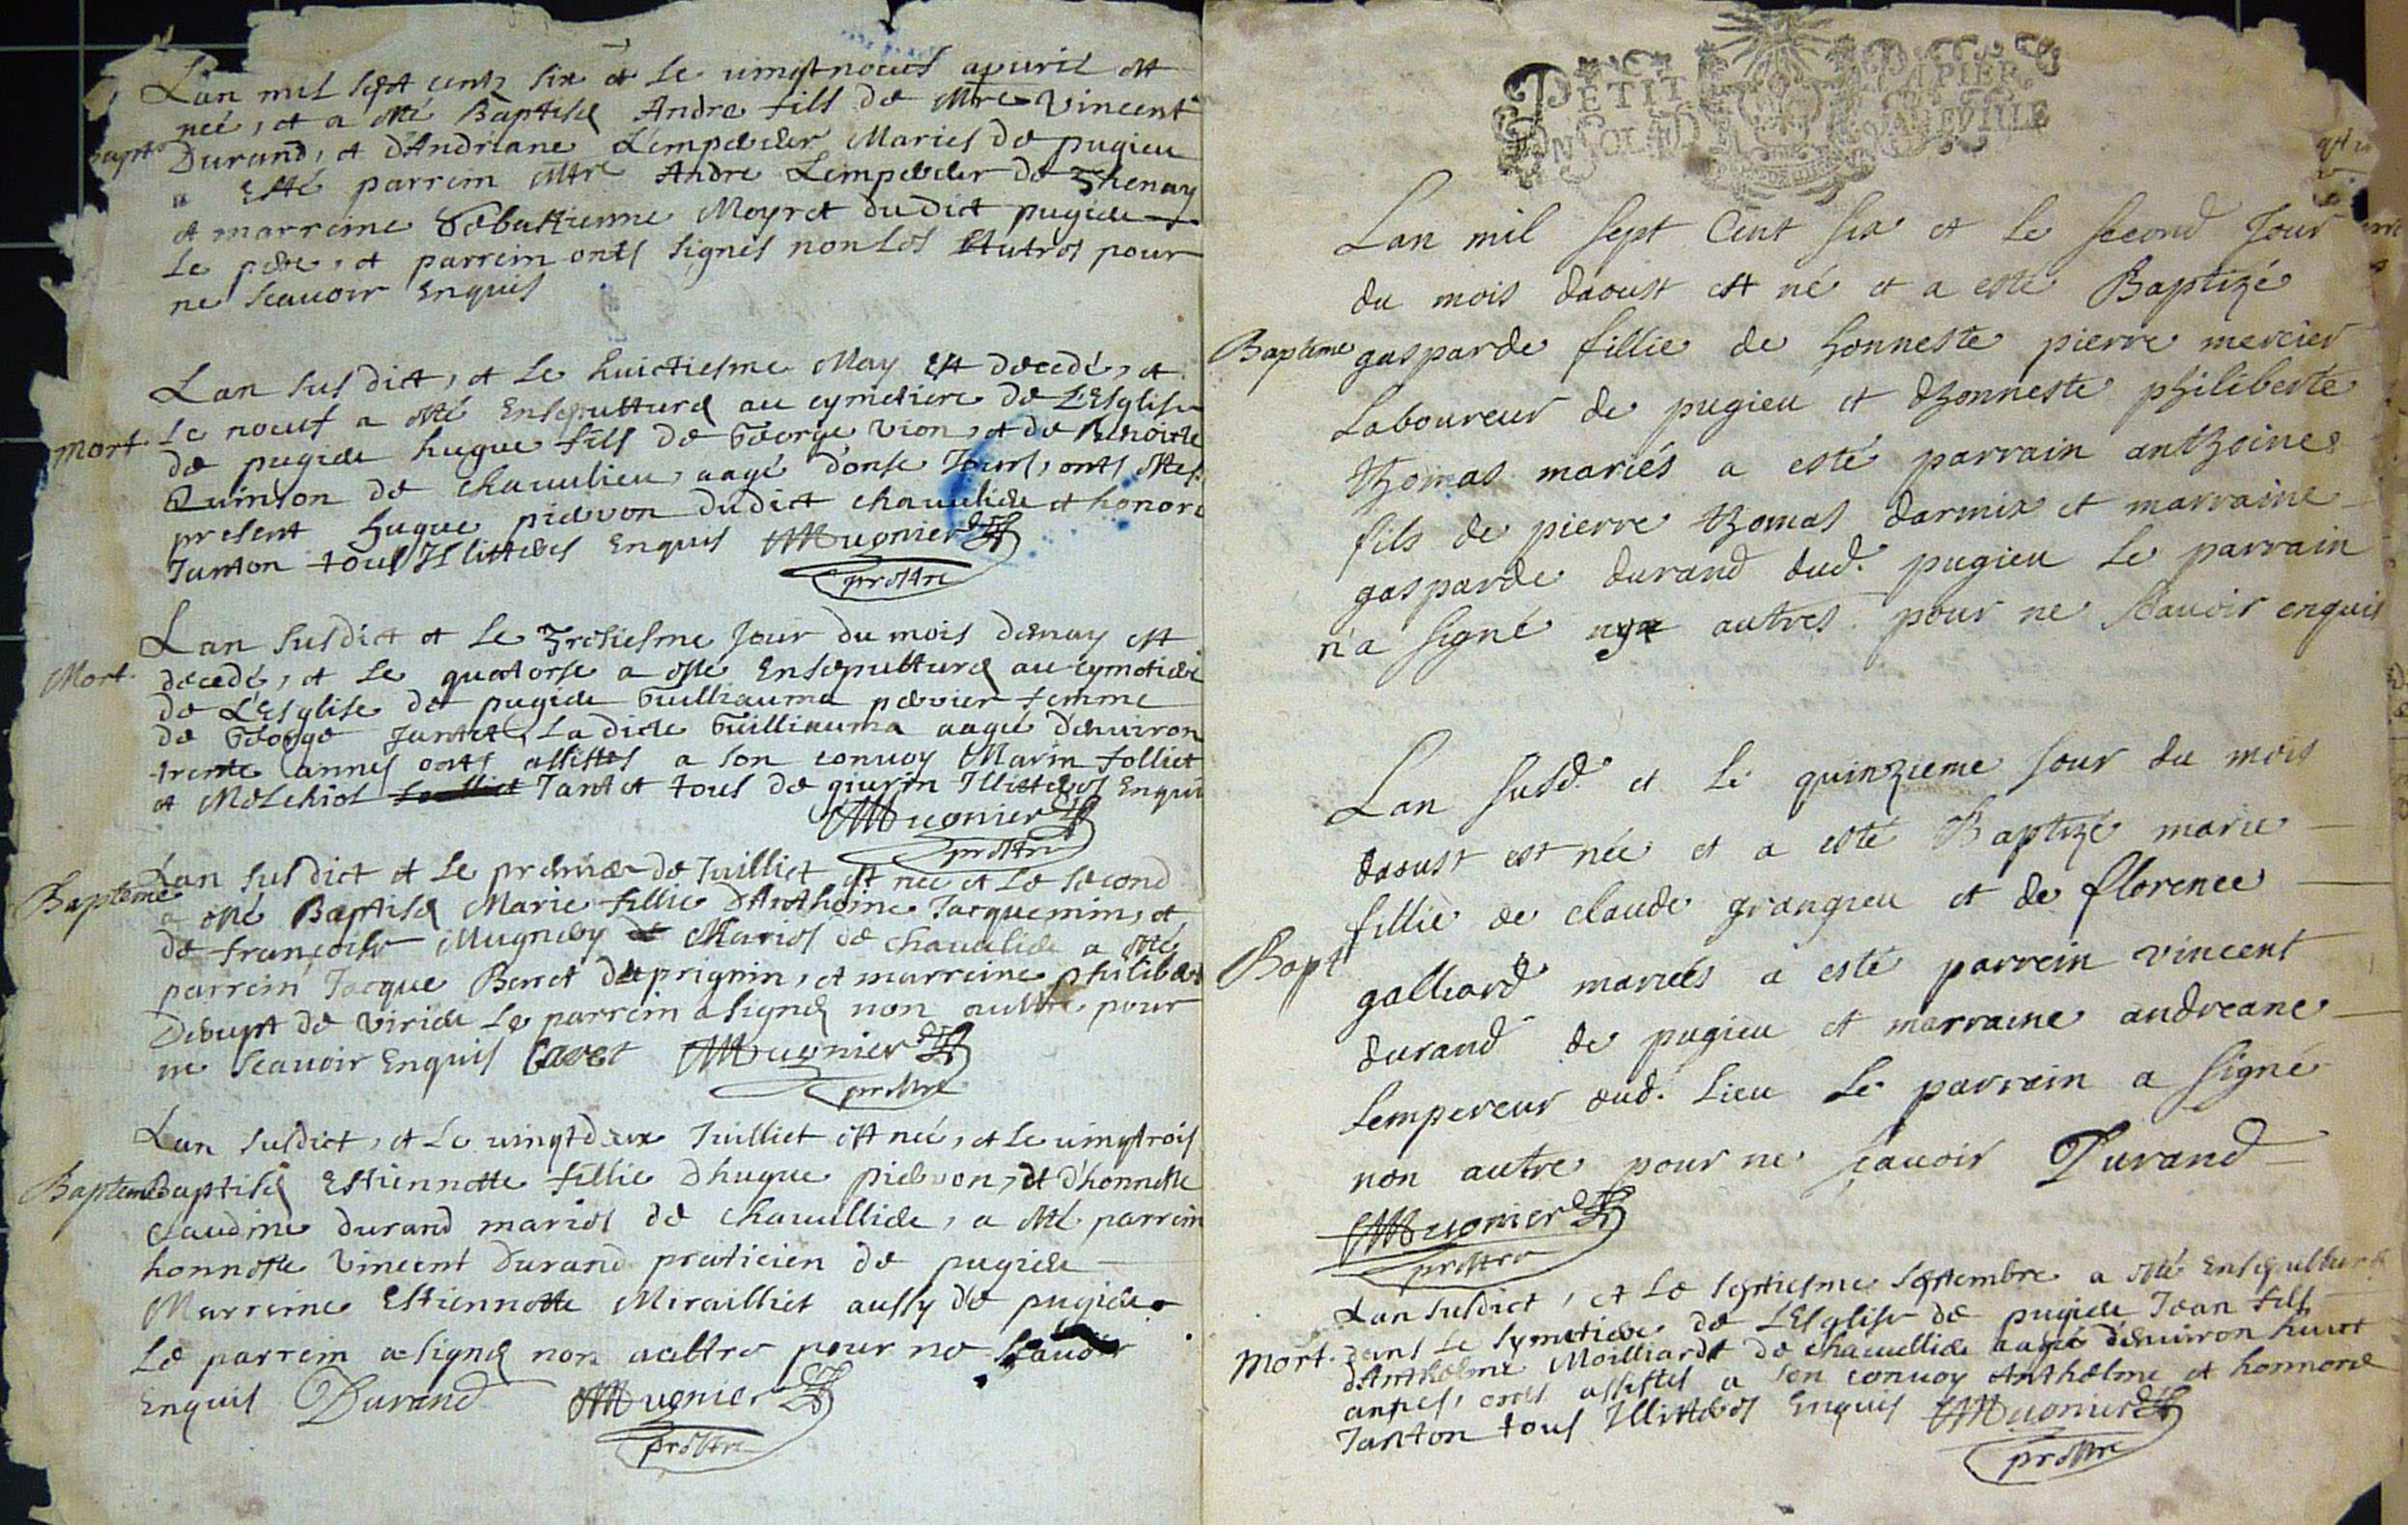 Lan mil sept cents six et le uingt noeuf apuril est
neé, et a esté Baptisé Andre fils de Mtre Vincent
bapt Durand, et d'Andriane Lempereur Mariés de pugieu
a Esté parrein Mtre Andre Lempereur de Thenay
et marreine Sebastienne Meyret du dict pugieu
Le pere, et parrein onts signés non Les Autres pour
ne scauoir Enquis
Lan susdict, et Le huictiesme May est decedé, et
mort Le noeuf a esté Ensepulturé au cymetiere de L'Esglise
de pugieu hugue fils de George Vion, et de Benoiste
Quinson de chauulieu, aagé d'onse Jours, onts estes
present hugue pieuron du dict chauulieu et honoré
Janton tous Illitteres Enquis Mugnier
prestre
Lan susdict et Le Tresiesme Jour du mois de may est
Mort decedé, et Le quatorse a esté Ensepulturé au cymetiere
de L'Esglise de pugieu Guilliauma peruier femme
de George Jantet, La dicte Guilliauma aagé d'enuiron
trente annes onts assistes a son conuoy Marin folliet
et Melchiol Jantet tous de giurin Illitteres Enquis
Mugnier
prestre
Lan susdict et Le premier de Juilliet est neé et Le second
Bapteme a esté Baptisé Marie fillie d'Anthoine Jacquemin, et
de françoise Mugnery Mariés de chauulieu a esté
parrein Jacque Berret de prignin, et marreine philiber
Debupt de virieu Le parrein a signé non aultre pour
ne scauoir Enquis Mugnier
prestre
Lan susdict, et Le uingt deux Juilliet est neé, et Le uingt trois
Bapteme Baptisé Estiennette fillie d'hugue pieuron, et d'honneste
Claudine durand mariés de chauullieu, a esté parrein
honneste Vincent Durand praticien de pugieu
Marreine Estiennette Mirailliet aussy de pugieu
Le parrein a signé non aultre pour ne scauoir
Enquis Durand Mugnier
prestre
PETIT PAPIER
Lan mil sept Cent six et le second Jour
du mois daoust est né et a esté Baptizé
Bapteme gasparde fillie de honneste pierre mercier
Laboureur de pugieu et dhonneste philiberte
thomas mariés a esté parrain anthoine
fils de pierre thomas darmix et marraine
gasparde durand dud. pugieu le parrain
n'a signé autres pour ne scauoir enquis
Lan susd. et le quinzieme Jour du mois
daoust est née et a esté Baptizé marie
fillie de claude grangieu et de florence
Bapt galliard mariés a esté parrein vincent
durand de pugieu et marraine andreane
lempereur dud. lieu le parrein a signé
non autre pour ne sçauoir Durand
Mugnier
prestre
Lan susdict, et Le septiesme septembre a esté Ensepulturé
mort dans Le symetiere de L'Esglise de pugieu Jean fils
d'Anthelme Moilliard de chauullieu aagé d'enuiron huict
annes, onts assistes a son conuoy Anthelme et honnoré
Janton tous Illitteres Enquis Mugnier
prestre